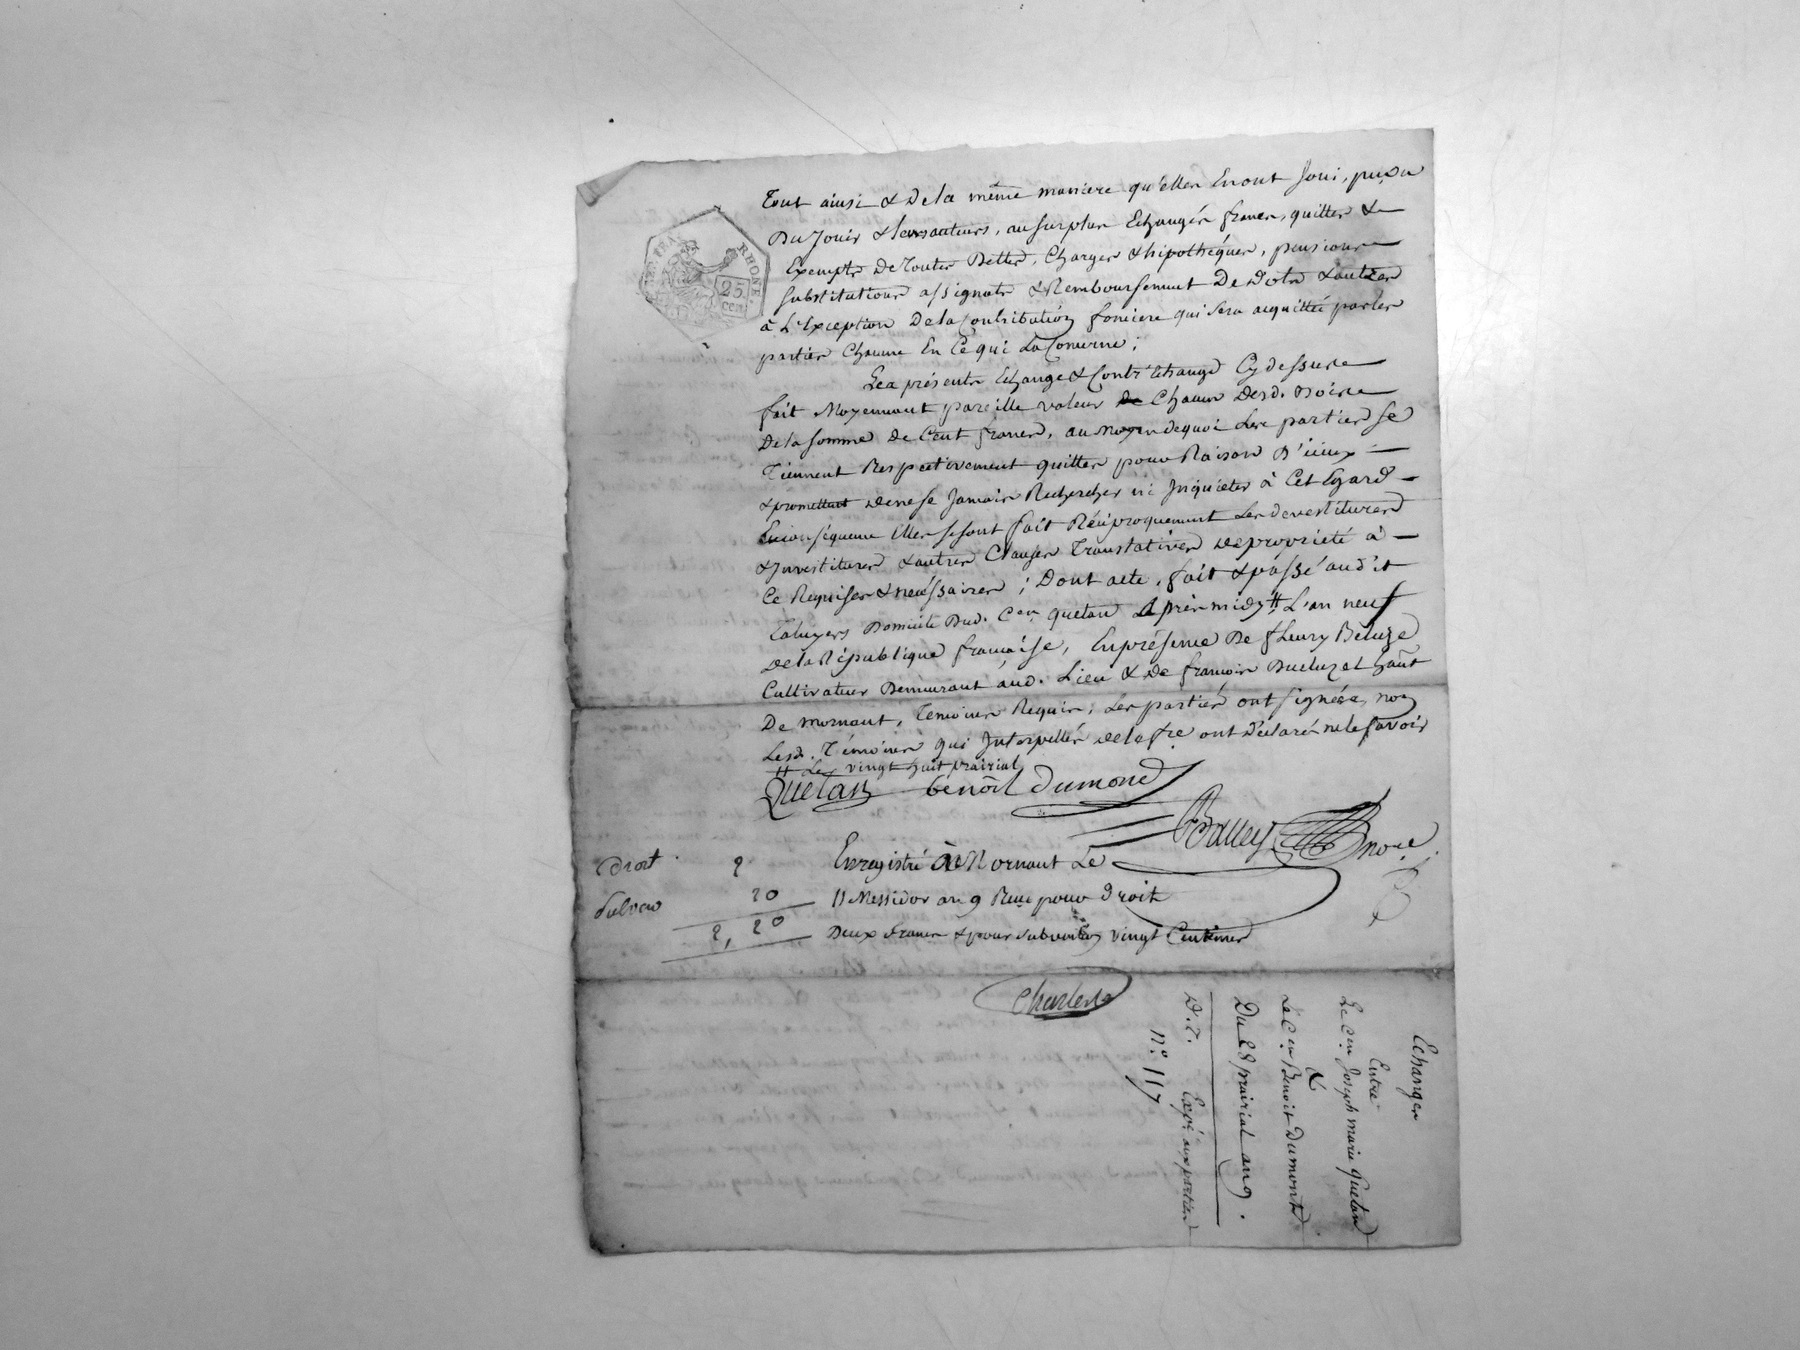 RHONE.
25
cen
Tout ainsi & De la même maniere qu'elles En ont Joui, pu ou
Du Jouir & leurs auteurs, au surplus Echangés francs, quittes &
Exempts De Toutes Dettes, Charges & hipothéques, pensions
substitutions assignats & Remboursement De Dots & autres
à L'Exception De la Contribution fonciere qui sera acquittée par les
parties Chacune En Ce qui La Concerne ;
Les présents Echange & Contr'Echange Cy dessus
fait Moyennant pareille valeur de Chacun Desd.
De la somme de Cent francs, au moyen de quoi Les parties se
Tiennent Respectivement quittes pour Raison D'iceux
& promettent de ne se Jamais Rechercher ni Inquieter à Cet Egard
En conséquence Elles se sont fait Réciproquement Les devestitures
& Investitures & autres Clauses Translatives de propriété à
Ce Requises & nécéssaires ; Dont acte, fait & passé aud't
Taluyers Domicile Dud. Cen quelan Après midy # L'an neuf
de la République française, En présence De fleury Beluze
Cultivateur Demeurant aud. Lieu & De françois Ducluzel habt
De mornant, Temoins Requis ; Les parties ont signées, non
Lesd. Témoins qui Interpellés de le fre ont Déclaré ne le savoir
# Le vingt huit prairial
Quelan benoît Dumond
Balley
Droit 2 Enregistré à Mornant Le
Subvon 20 11 Messidor an 9 Reçu pour Droit
2, 20 Deux francs & pour subvention vingt Centimes
Charles
Echanges
Entre
Le Cen Joseph marie Quelan
&
Le Cen Benoit Dumont
Du 28 prairial an 9.
D. T. Expé aux parties
n.° 117